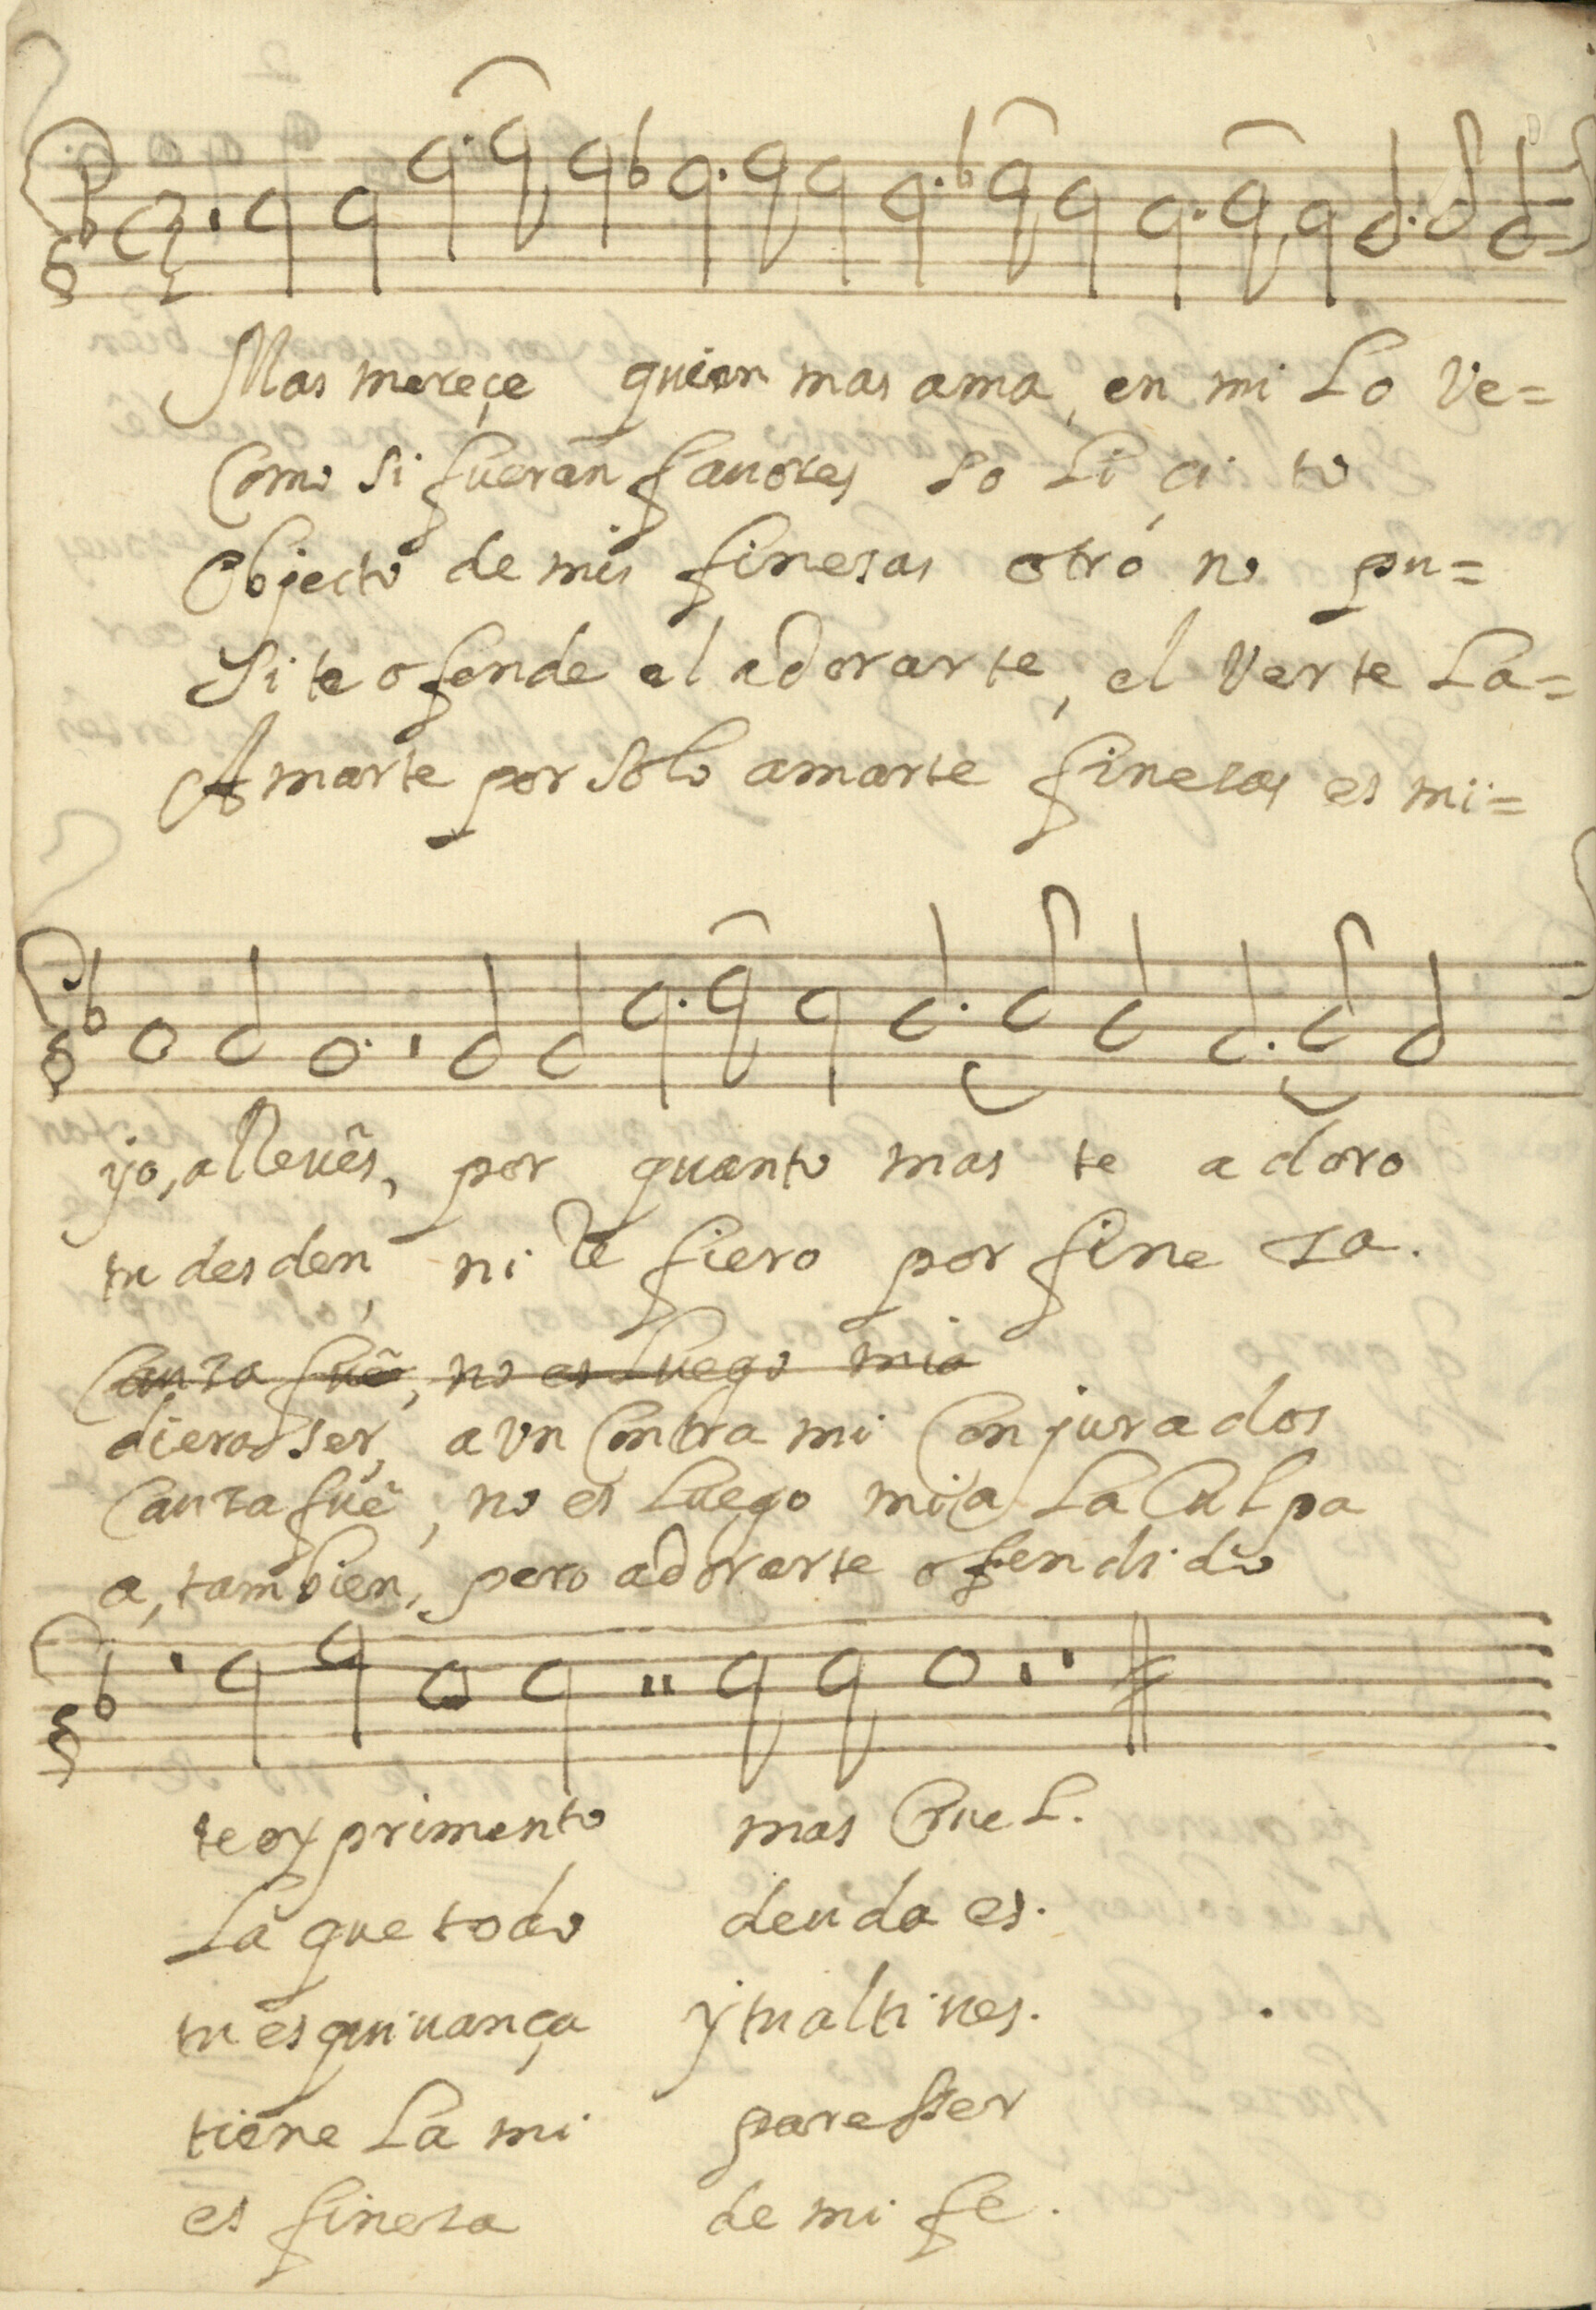 Mas mereçe quien mas ama, en mi Lo Ve=
Como si fueran fauores so li çi to
Objecto de mis finesas otró no pu=
Si te ofende el adorarte, el Verte La=
Amarte por solo amarte finesas es mi=
yo, alleuês, por quanto mas te adoro
tu desden, ni te fiero por fine sa.
Causa fuê, no es Luego mia
diera ser, a vn Contra mi Conjurados
Causa fuê, no es Luego mia La Culpa
a, tambien, pero adorarte ofendido
te exprimento mas Cruel.
La que todo deuda es.
tu esquiuança y tu altiues.
tiene La mi paresser
es finesa de mi fe.